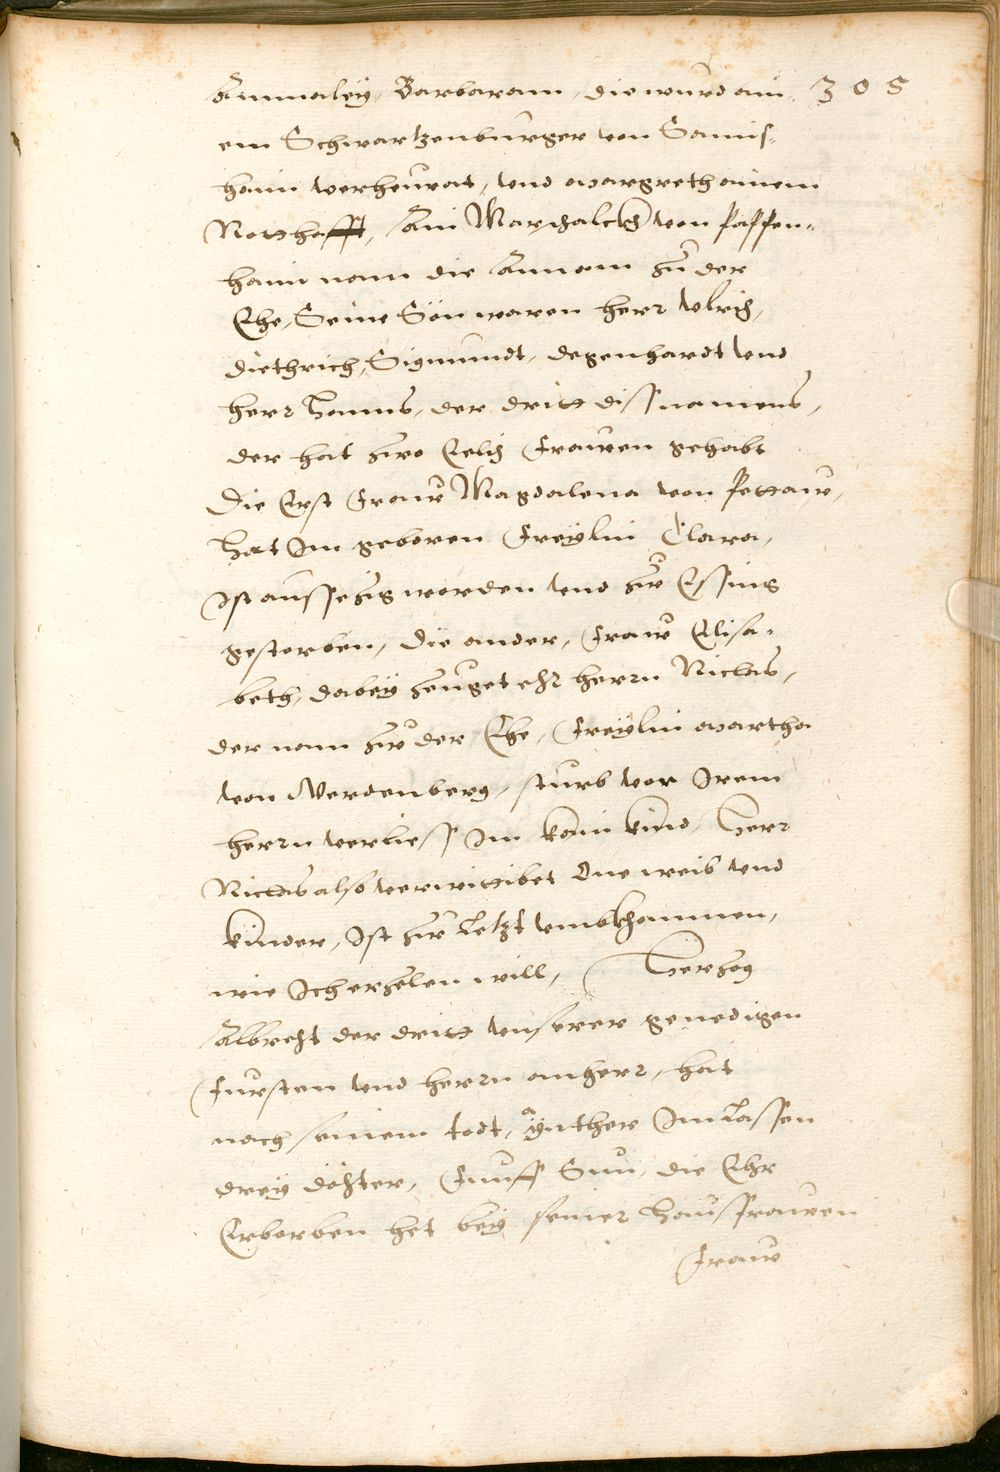 Annnaley, Barbaram, die wurd ain, 305
em Schwartzenburger von Sauns=
haim verheurat, vnd margreth ainem
Notthafft, Ain Marschalckh von Pappen=
haim nam die Annam zu der
Ehe, Seine Sön waren herr Vlrich,
Diethrich, Sigmundt, degenhardt vnd
herr Hanns, der dritt diss namens,
der hat zwo Eelich Frawen gehabt
Die Erst Fraw Magdalena von Pettaw,
Hat Im geboren Freylin Clara,
Ist aussetzig worden vnd zw Essing
gestorben, die ander, Fraw Elisa=
beth, dabey zeuget ehr herrn Niclas,
der nam zw der Ehe, Freylin martha
von Werdenberg, sturb vor Irem
herrn verliess Im kain kind, Herr
Niclas also verwittibet One weib vnd
kinder, Ist zw Letzt vmbkhommen,
wie Ich erzelen will, Hertzog
Albrecht der dritt vnserer genedigen
Fursten vnd herrn anherr, hat
nach seinem todt, hinther Im Lassen
drey döchter, Funff Sun, die Ehr
Erborben het bey seiner Haussfrauen
Fraw